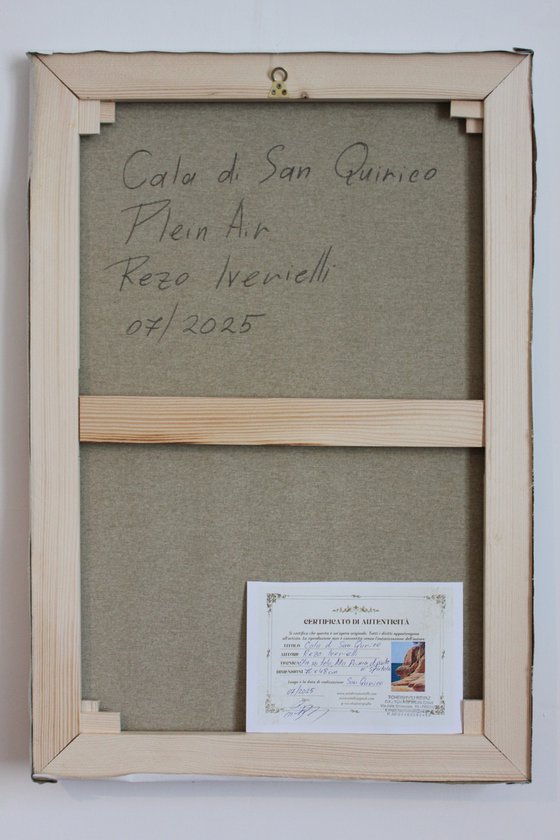 Cala di San Quirico
Plein Air
Rezo Iverielli
07/2025
CERTIFICATO DI AUTENTICITÀ
Si certifica che questa è un'opera originale. Tutti i diritti appartengono
all'artista. La riproduzione non è consentita senza l'autorizzazione dell'autore.
TITOLO Cala di San Quirico
AUTORE Rezo Iverielli
TECNICA Olio su tela, Alla Prima
DIMENSIONI cm
Luogo e la data di realizzazione San Quirico
07/2025